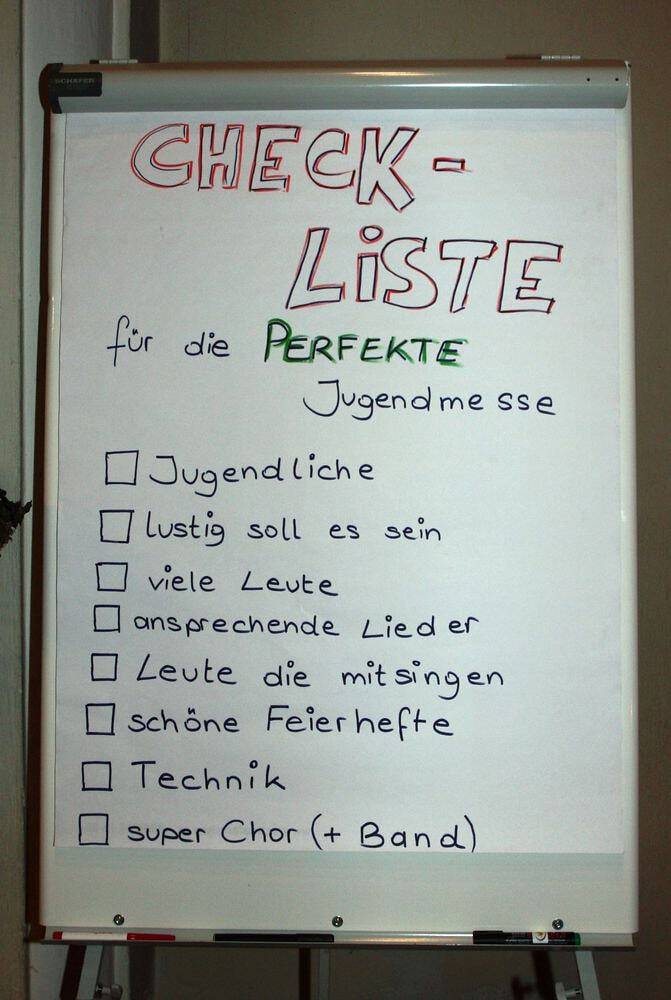 SCHÄFER
CHECK-
LiSTE
für die PERFEKTE
Jugendmesse
Jugendliche
lustig soll es sein
viele Leute
ansprechende Lieder
Leute die mitsingen
schöne Feierhefte
Technik
super Chor (+ Band)